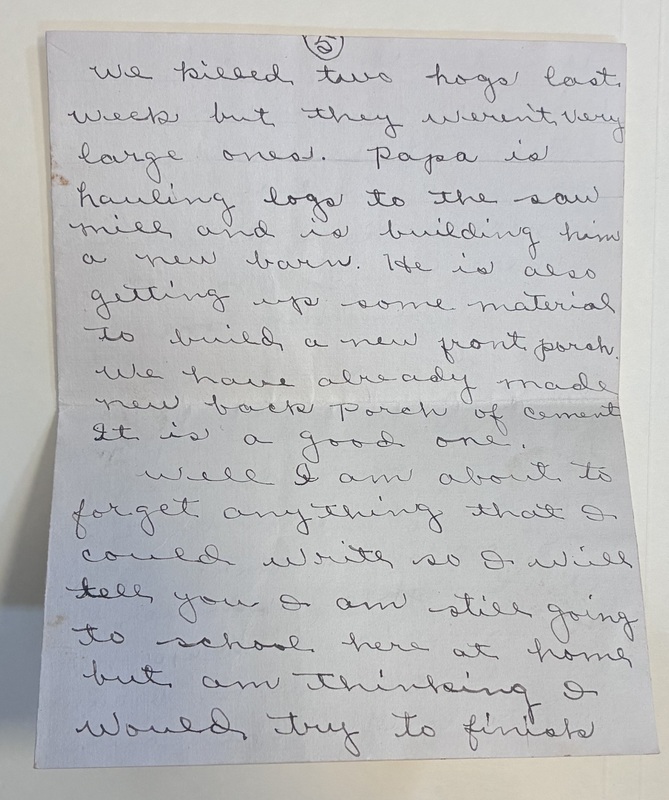 5
We killed two hogs last
week but they weren't very
large ones. Papa is
hauling logs to the saw
mill and is building him
a new barn. He is also
getting up some material
to build a new front porch.
We have already made
new back porch of cement
It is a good one.
Well I am about to
forget anything that I
could write so I will
tell you I am still going
to school here at home
but am thinking I
would try to finish